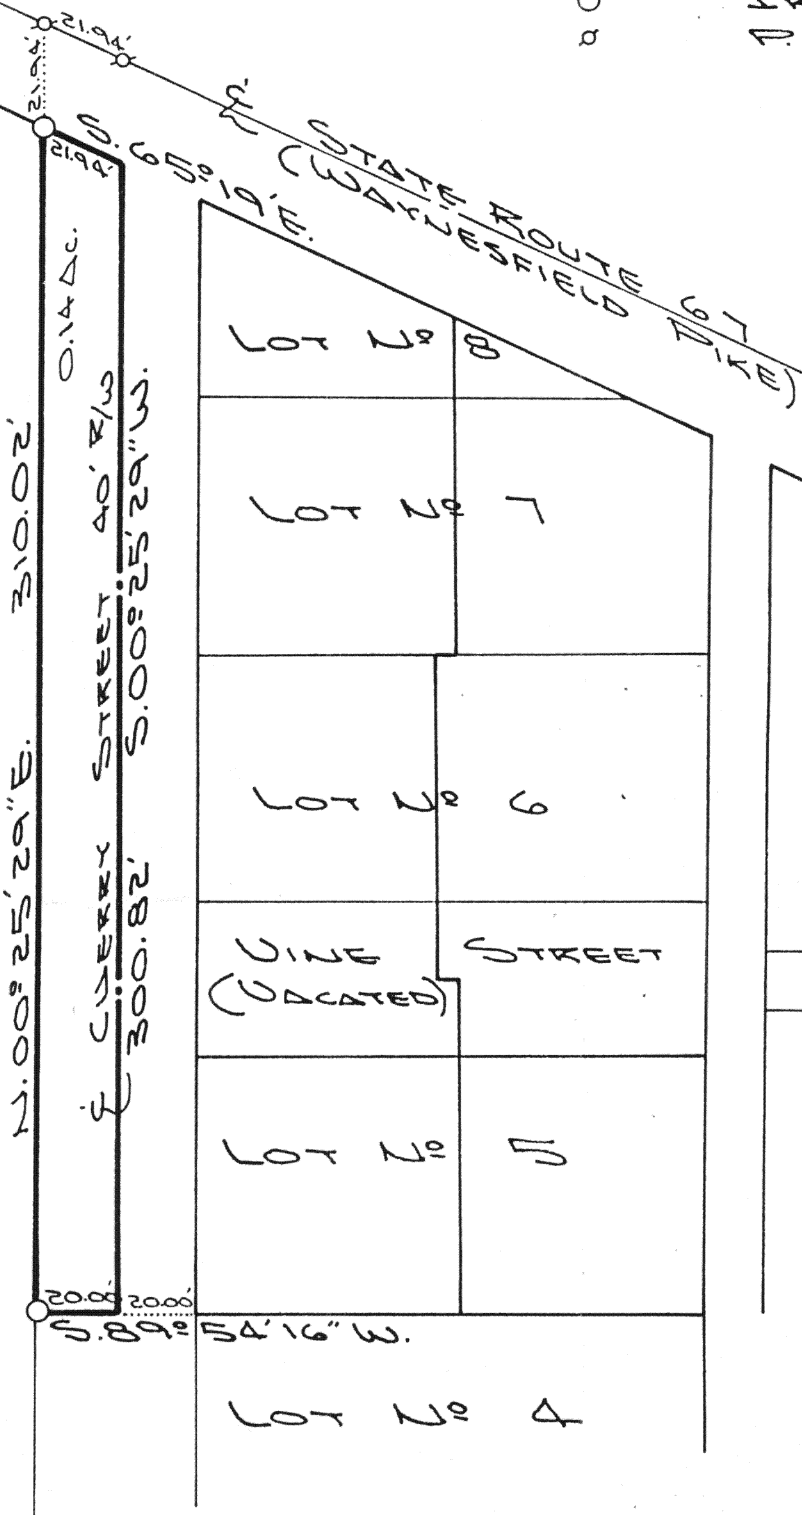 21.94'
21.94'
21.94'
S. 65° 19' E.
℄ STATE ROUTE 67
(WAYNESFIELD PIKE)
0.14 AC.
N. 00° 25' 29" E. 310.02'
℄ CHERRY STREET 40' R/W
300.82' S. 00° 25' 29" W.
LOT Nº 8
LOT Nº 7
LOT Nº 6
VINE STREET
(VACATED)
LOT Nº 5
20.00'
20.00'
S. 89° 54' 16" W.
LOT Nº 4